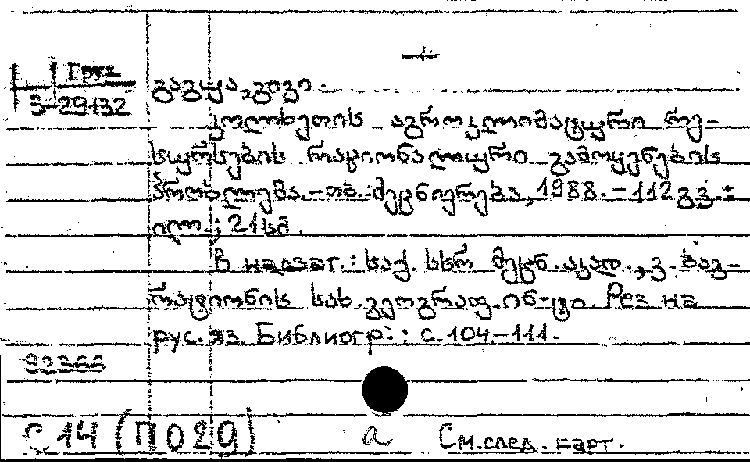 Груз
3-29132
გაგუა, გივი.
კოლხეთის აგროკლიმატური რე-
სურსების რაციონალური გამოყენების
პრობლემა. - თბ.: მეცნიერება, 1988. - 112 გვ.:
ილ.; 21 სმ.
В надзаг.: საქ. სსრ მეცნ. აკად., ვ. ბაგ-
რატიონის სახ. გეოგრაფ. ინ-ტი. Рез. на
рус. яз. Библиогр.: с. 104-111.
92366
С14(П029)
а См. след. карт.